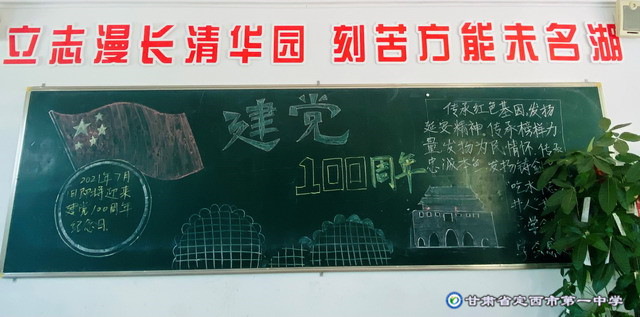 立志漫长清华园 刻苦方能未名湖
建党
100周年
2021年7月
1日即将迎来
建党100周年
纪念日。
传承红色基因,发扬
延安精神,传承榜样力
量,发扬为民情怀,传承
忠诚本色,发扬
吃水
井人
学
甘肃省定西市第一中学